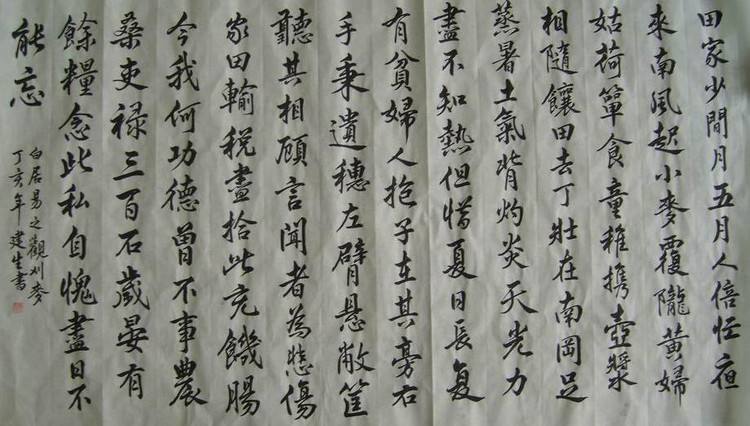 田家少間月五月人倍忙夜
來南風起小麥覆隴黃婦
姑荷簞食童稚携壺漿
相隨饟田去丁壯在南岡足
蒸暑土氣背灼炎天光力
盡不知熱但惜夏日長复
有貧婦人抱子在其旁右
手秉遺穗左臂懸敝筐
聽其相顧言聞者為悲傷
家田輸税盡拾此充饑腸
今我何功德曾不事農
桑吏禄三百石歲晏有
餘糧念此私自愧盡日不
能忘
白居易之觀刈麥
丁亥年建生書